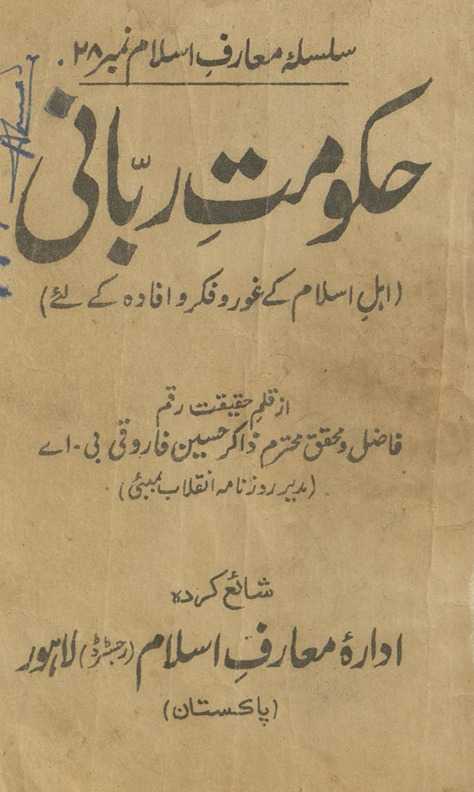 سلسلۂ معارفِ اسلام نمبر ۲۸.
حکومتِ ربّانی
(اہلِ اسلام کے غور و فکر و افادہ کے لئے)
از قلمِ حقیقت رقم
فاضل و محقق محترم ذاکر حسین فاروقی بی۔اے
(مدیر روزنامہ انقلاب بمبئی)
شائع کردہ
ادارۂ معارفِ اسلام (رجسٹرڈ) لاہور
(پاکستان)